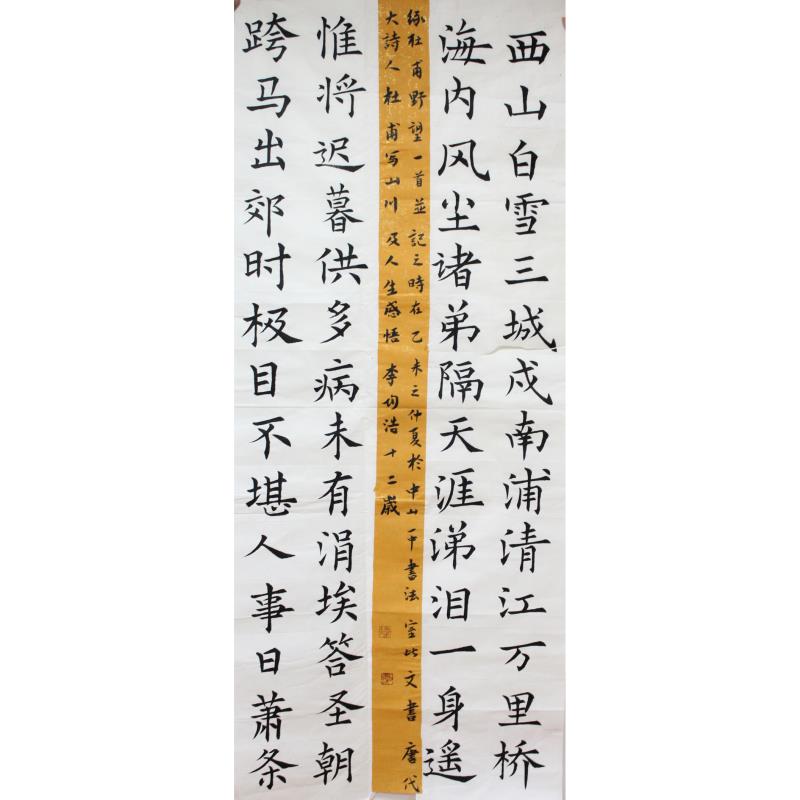 西山白雪三城戍南浦清江万里桥
海内风尘诸弟隔天涯涕泪一身遥
惟将迟暮供多病未有涓埃答圣朝
跨马出郊时极目不堪人事日萧条
杜甫野望一首並記之時在乙未之仲夏於中山一中書法室此文書唐代
大詩人杜甫写山川及人生感悟李昀浩十二歲